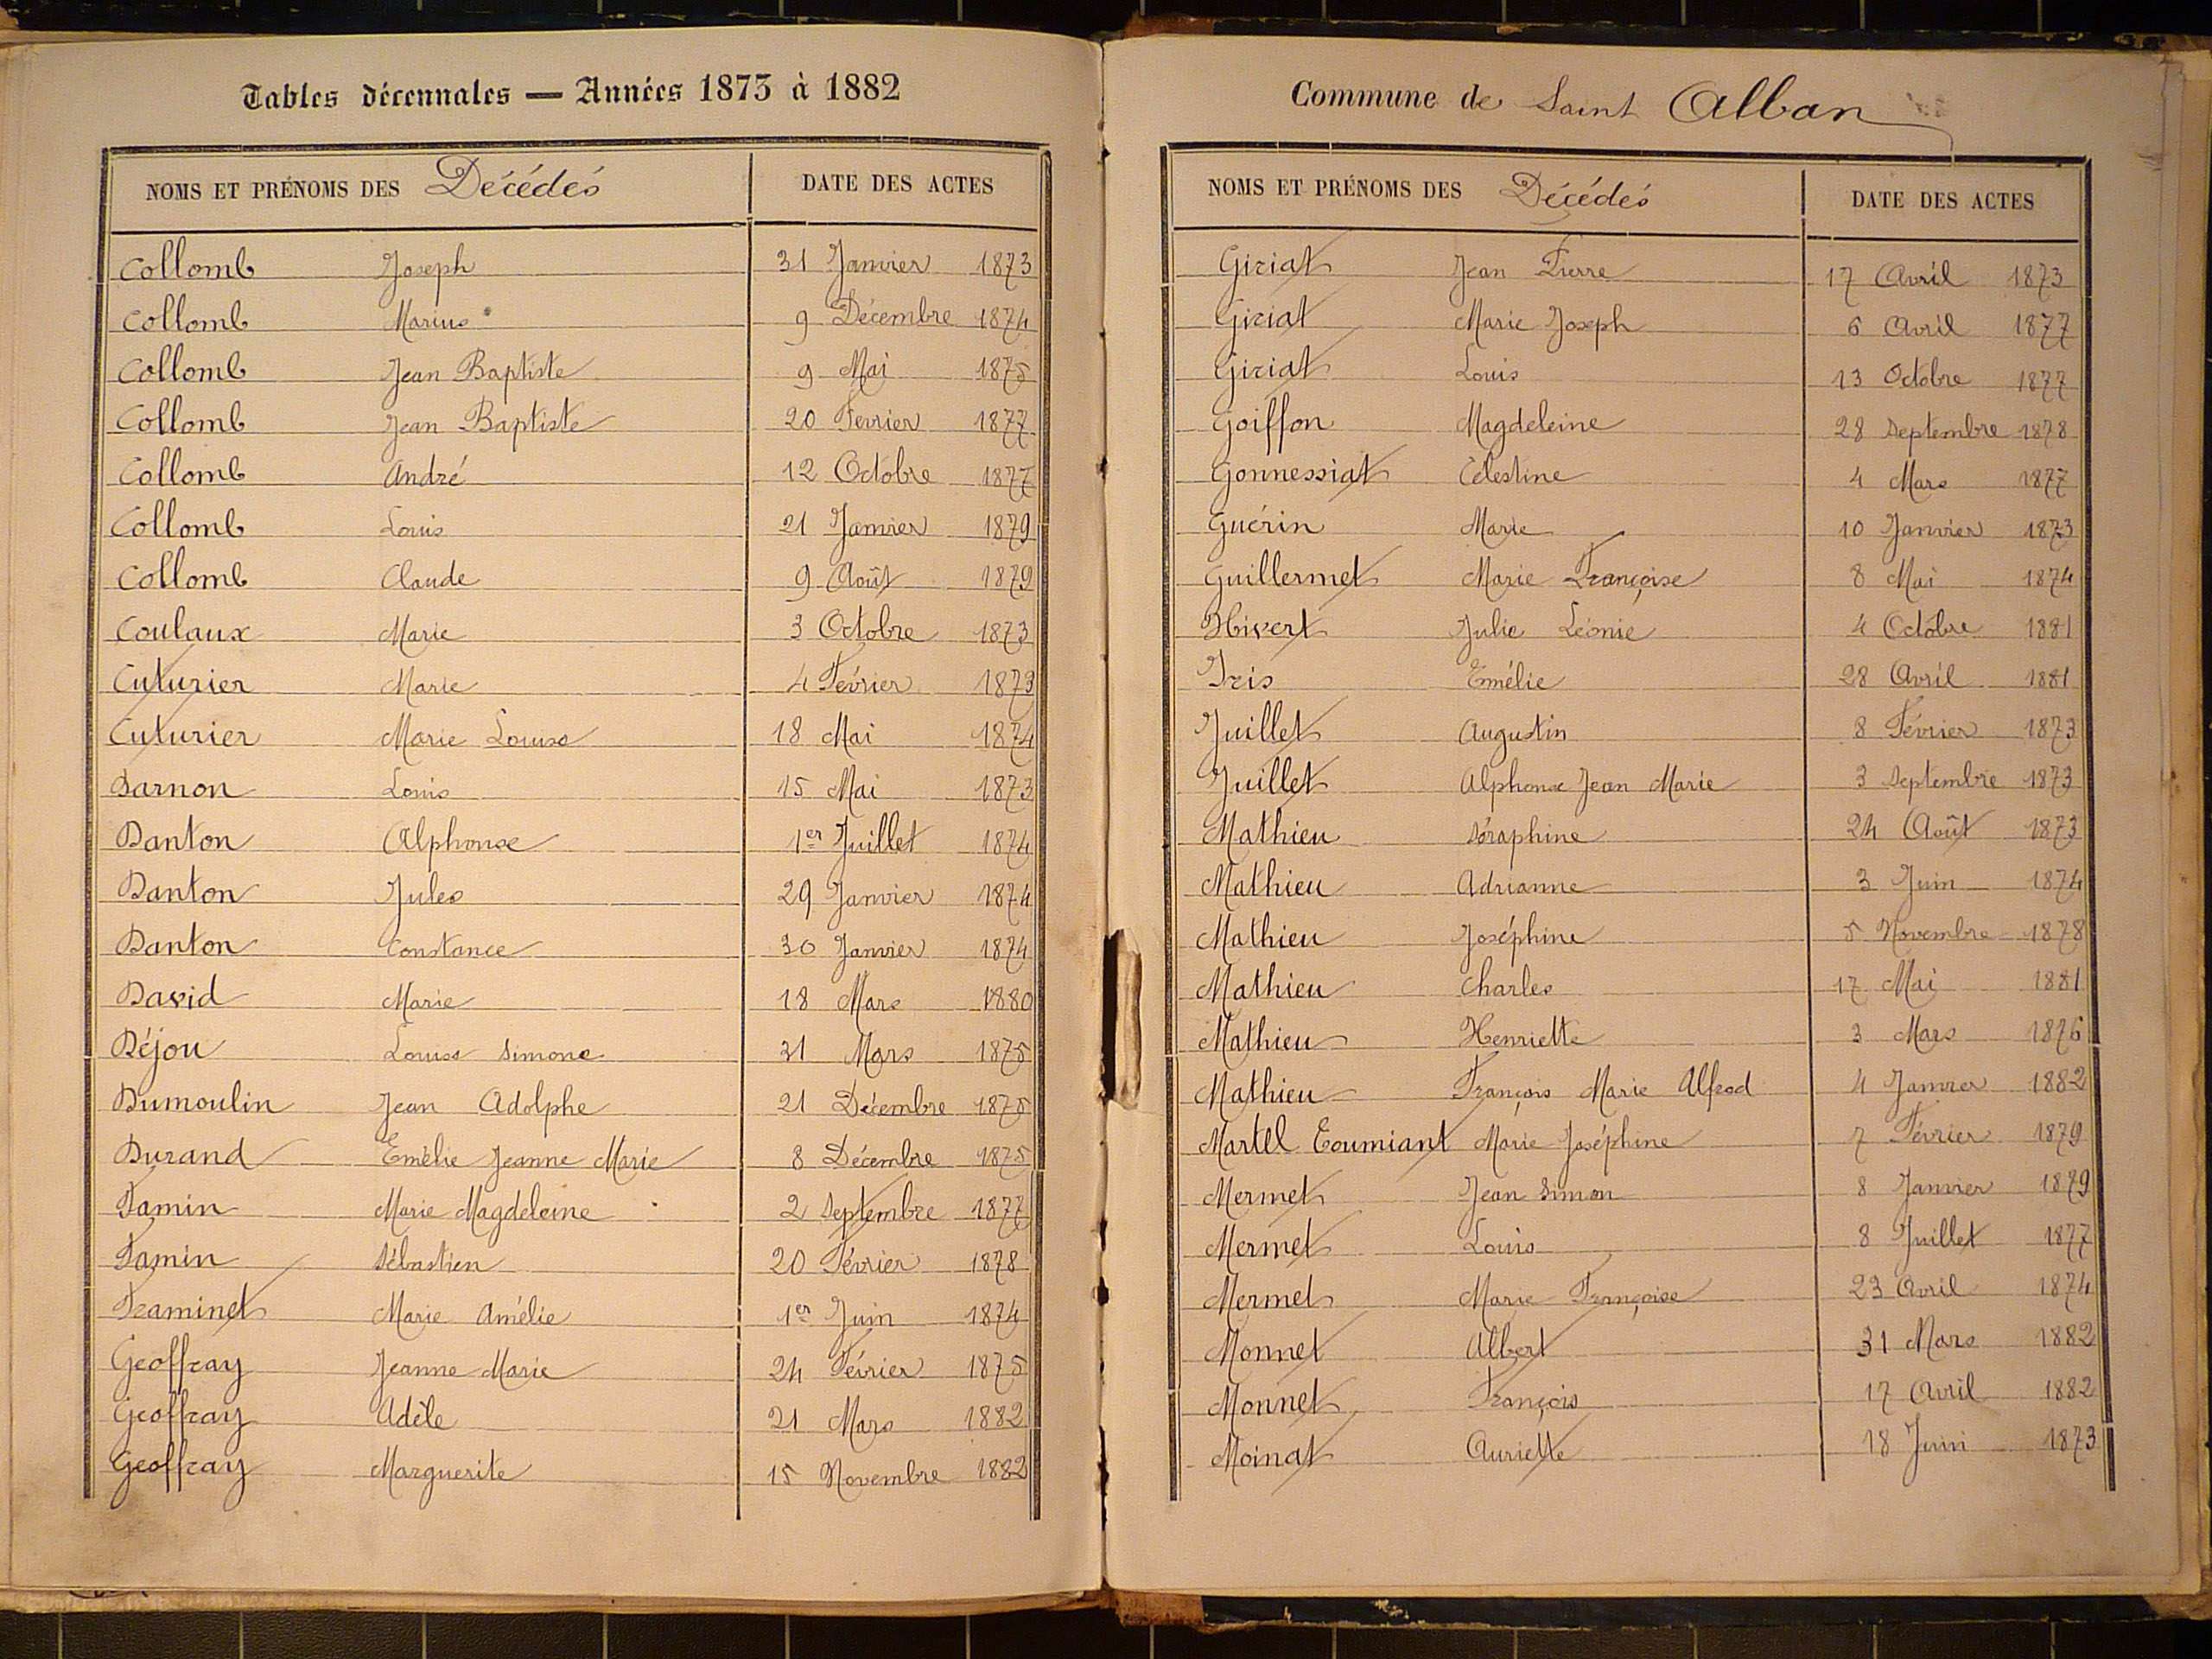 Tables décennales — Années 1873 à 1882
NOMS ET PRÉNOMS DES Décédés DATE DES ACTES
Collomb Joseph 31 Janvier 1873
Collomb Marius 9 Décembre 1874
Collomb Jean Baptiste 9 Mai 1875
Collomb Jean Baptiste 20 Fevrier 1877
Collomb André 12 Octobre 1877
Collomb Louis 21 Janvier 1879
Collomb Claude 9 Août 1879
Coulaux Marie 3 Octobre 1873
Cuturier Marie 4 Février 1873
Cuturier Marie Louise 18 Mai 1874
Darnon Louis 15 Mai 1873
Danton Alphonse 1er Juillet 1874
Danton Jules 29 Janvier 1874
Danton Constance 30 Janvier 1874
David Marie 18 Mars 1880
Déjou Louise Simone 31 Mars 1875
Dumoulin Jean Adolphe 21 Décembre 1875
Durand Emélie Jeanne Marie 8 Décembre 1875
Famin Marie Magdeleine 2 Septembre 1877
Famin Sébastien 20 Février 1878
Framinet Marie Amélie 1er Juin 1874
Geoffray Jeanne Marie 24 Février 1875
Geoffray Adèle 21 Mars 1882
Geoffray Marguerite 15 Novembre 1882
Commune de Saint Alban
NOMS ET PRÉNOMS DES Décédés DATE DES ACTES
Giriat Jean Pierre 17 Avril 1873
Giriat Marie Joseph 6 Avril 1877
Giriat Louis 13 Octobre 1877
Goiffon Magdeleine 28 Septembre 1878
Gonnessiat Célestine 4 Mars 1877
Guérin Marie 10 Janvier 1873
Guillermet Marie Françoise 8 Mai 1874
Hivert Julie Léonie 4 Octobre 1881
Iris Emélie 28 Avril 1881
Juillet Augustin 8 Février 1873
Juillet Alphonse Jean Marie 3 Septembre 1873
Mathieu Séraphine 24 Août 1873
Mathieu Adrianne 3 Juin 1874
Mathieu Joséphine 5 Novembre 1878
Mathieu Charles 17 Mai 1881
Mathieu Henriette 3 Mars 1876
Mathieu François Marie Alfred 4 Janvier 1882
Martel Toumiant Marie Joséphine 7 Février 1879
Mermet Jean Simon 8 Janvier 1879
Mermet Louis 8 Juillet 1877
Mermet Marie Françoise 23 Avril 1874
Monnet Albert 31 Mars 1882
Monnet François 17 Avril 1882
Moinat Auriette 18 Juin 1873